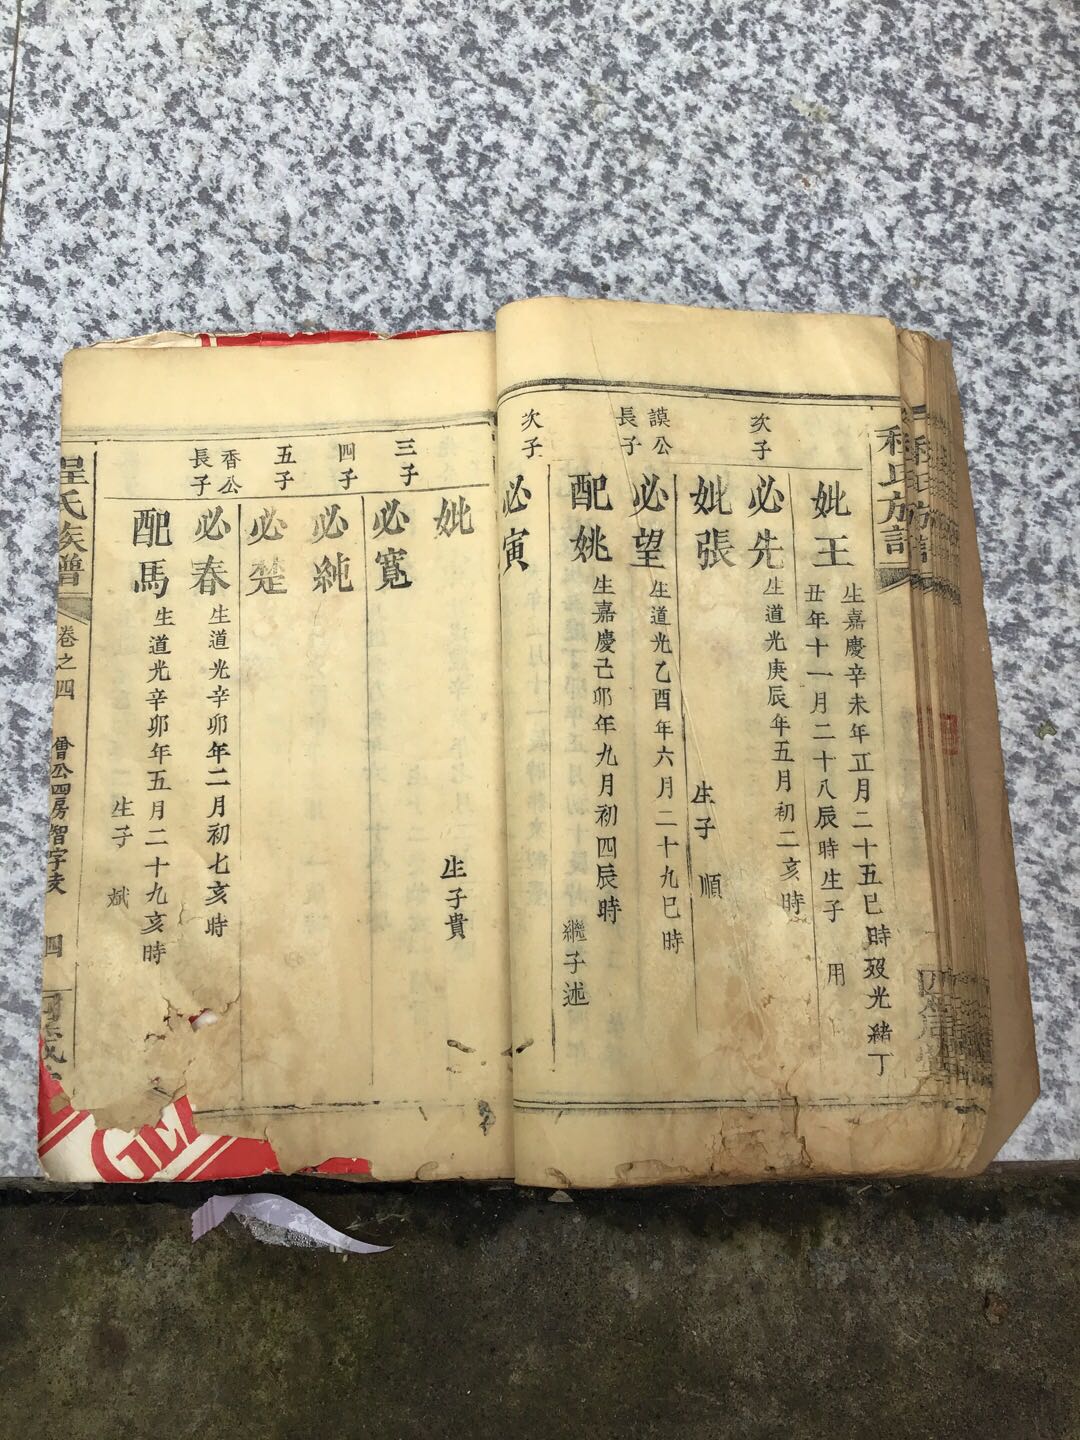 妣王 生嘉慶辛未年正月二十五巳時歿光緒丁
丑年十一月二十八辰時生子 用
次子 必先 生道光庚辰年五月初二亥時
妣張 生子 順
謨公
長子 必望 生道光乙酉年六月二十九巳時
配姚 生嘉慶己卯年九月初四辰時 繼子述
次子 必寅
妣 生子貴
三子 必寬
四子 必純
五子 必楚
香公
長子 必春 生道光辛卯年二月初七亥時
配馬 生道光辛卯年五月二十九亥時
生子 斌
程氏族譜 卷之四 僧公四房智字支 四